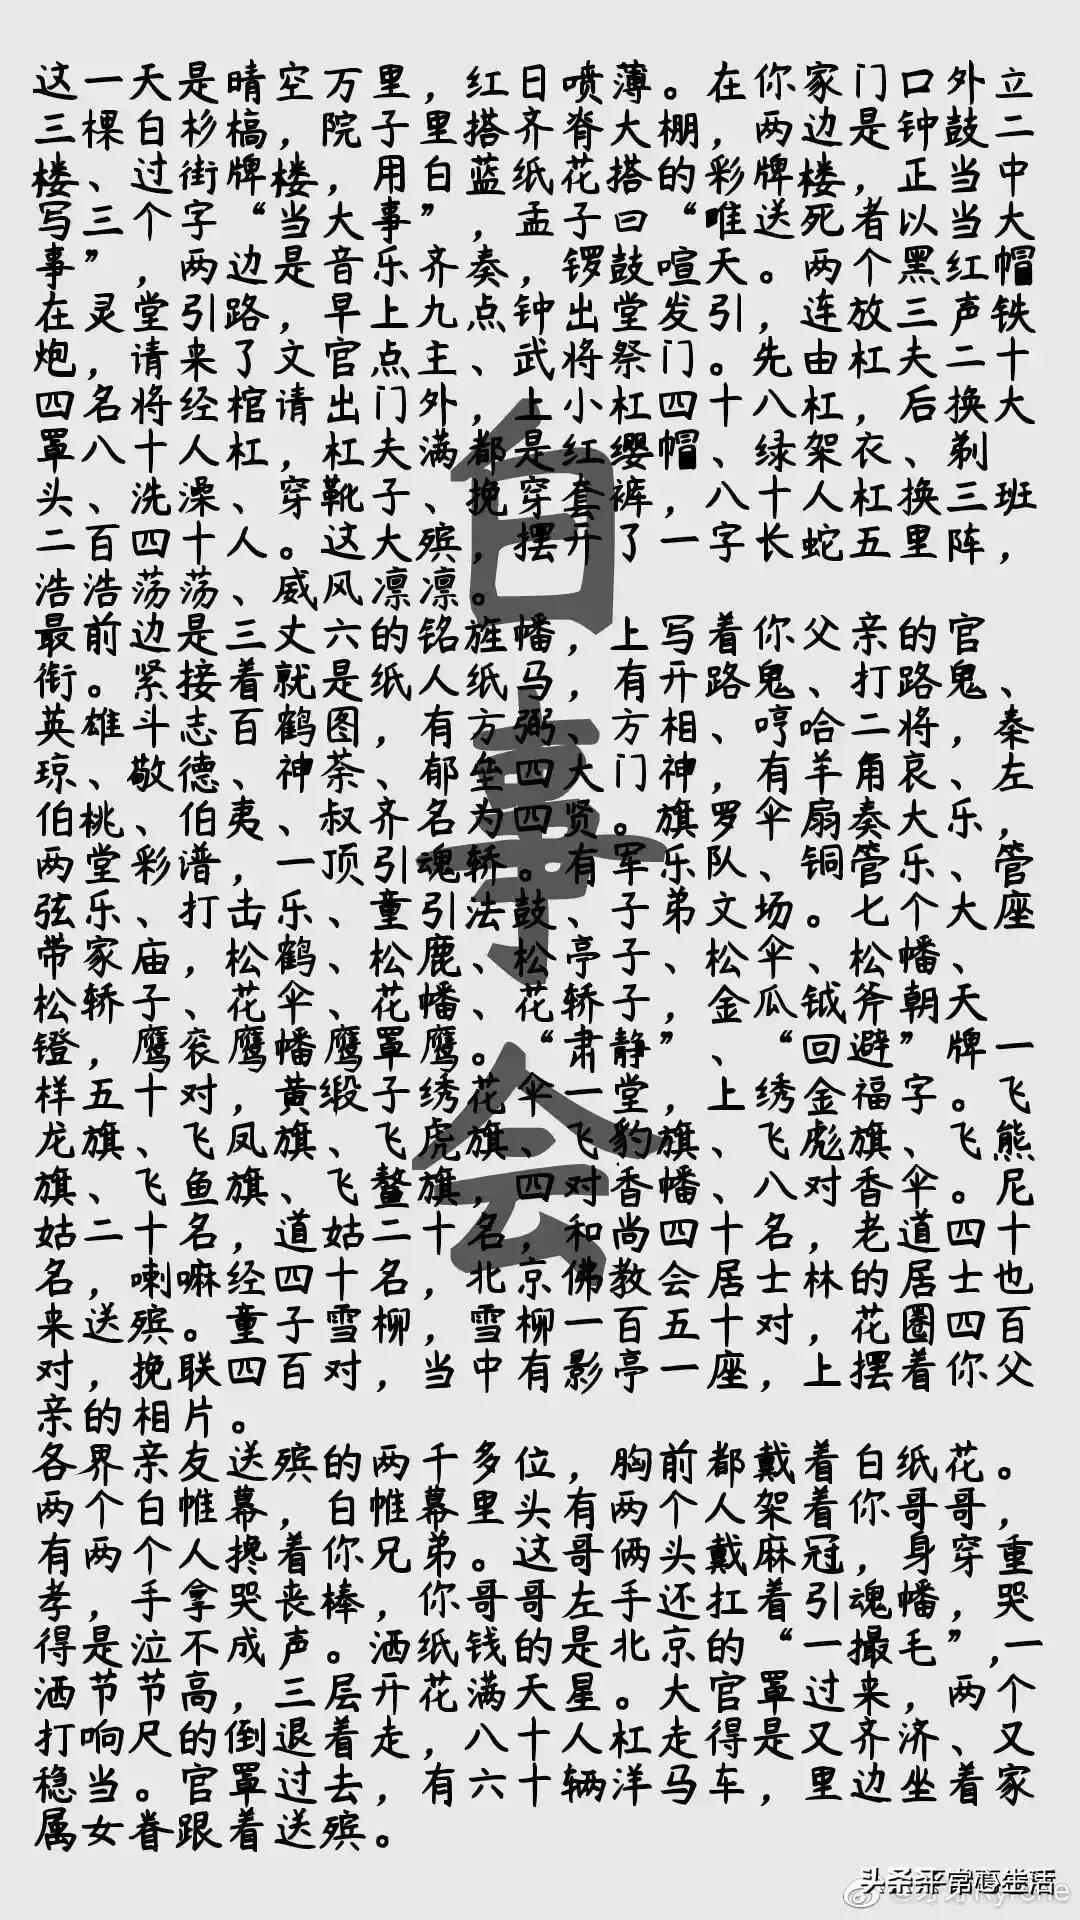 这一天是晴空万里，红日喷薄。在你家门口外立
三棵白杉槁，院子里搭齐脊大棚，两边是钟鼓二
楼、过街牌楼，用白蓝纸花搭的彩牌楼，正当中
写三个字“当大事”，孟子曰“唯送死者以当大
事”，两边是音乐齐奏，锣鼓喧天。两个黑红帽
在灵堂引路，早上九点钟出堂发引，连放三声铁
炮，请来了文官点主、武将祭门。先由杠夫二十
四名将经棺请出门外，上小杠四十八杠，后换大
罩八十人杠，杠夫满都是红缨帽、绿架衣、剃
头、洗澡、穿靴子、挽穿套裤，八十人杠换三班
二百四十人。这大殡，摆开了一字长蛇五里阵，
浩浩荡荡、威风凛凛。
最前边是三丈六的铭旌幡，上写着你父亲的官
衔。紧接着就是纸人纸马，有开路鬼、打路鬼、
英雄斗志百鹤图，有方弼、方相、哼哈二将，秦
琼、敬德、神荼、郁垒四大门神，有羊角哀、左
伯桃、伯夷、叔齐名为四贤。旗罗伞扇奏大乐，
两堂彩谱，一顶引魂轿。有军乐队、铜管乐、管
弦乐、打击乐、童引法鼓、子弟文场。七个大座
带家庙，松鹤、松鹿、松亭子、松伞、松幡、
松轿子、花伞、花幡、花轿子，金瓜钺斧朝天
镫，鹰衮鹰幡鹰罩鹰。“肃静”、“回避”牌一
样五十对，黄缎子绣花伞一堂，上绣金福字。飞
龙旗、飞凤旗、飞虎旗、飞豹旗、飞彪旗、飞熊
旗、飞鱼旗、飞鳌旗，四对香幡、八对香伞。尼
姑二十名，道姑二十名，和尚四十名，老道四十
名，喇嘛经四十名，北京佛教会居士林的居士也
来送殡。童子雪柳，雪柳一百五十对，花圈四百
对，挽联四百对，当中有影亭一座，上摆着你父
亲的相片。
各界亲友送殡的两千多位，胸前都戴着白纸花。
两个白帷幕，白帷幕里头有两个人架着你哥哥，
有两个人搀着你兄弟。这哥俩头戴麻冠，身穿重
孝，手拿哭丧棒，你哥哥左手还扛着引魂幡，哭
得是泣不成声。洒纸钱的是北京的“一撮毛”,一
洒节节高，三层开花满天星。大官罩过来，两个
打响尺的倒退着走，八十人杠走得是又齐济、又
稳当。官罩过去，有六十辆洋马车，里边坐着家
属女眷跟着送殡。
白事会
头条@平常心生活